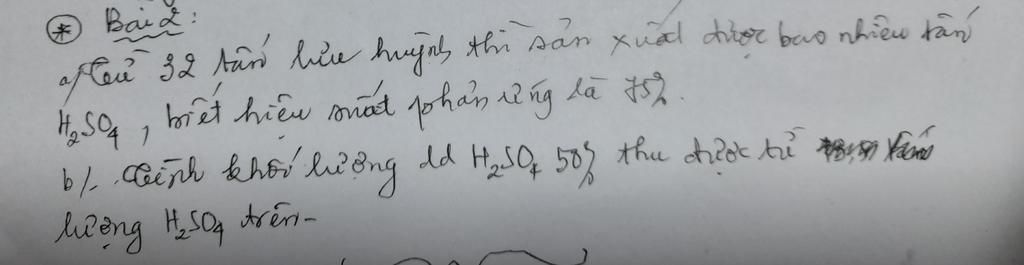 * Bài 2:
a/ Từ 32 tấn lưu huỳnh thì sản xuất được bao nhiêu tấn
H₂SO₄, biết hiệu suất phản ứng là 75%.
b/. Tính khối lượng dd H₂SO₄ 50% thu được từ
lượng H₂SO₄ trên-